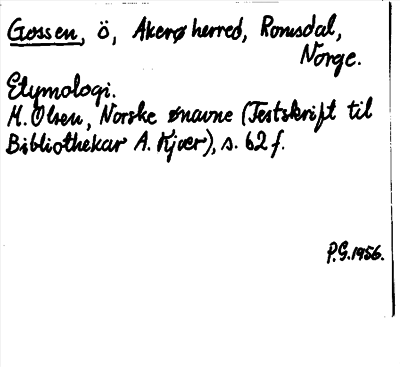 Gossen, ö, Akerø herred, Romsdal,
Norge.
Etymologi.
M. Olsen, Norske ønavne (Festskrift til
Bibliothekar A. Kjær), s. 62 f.
P.G. 1956.